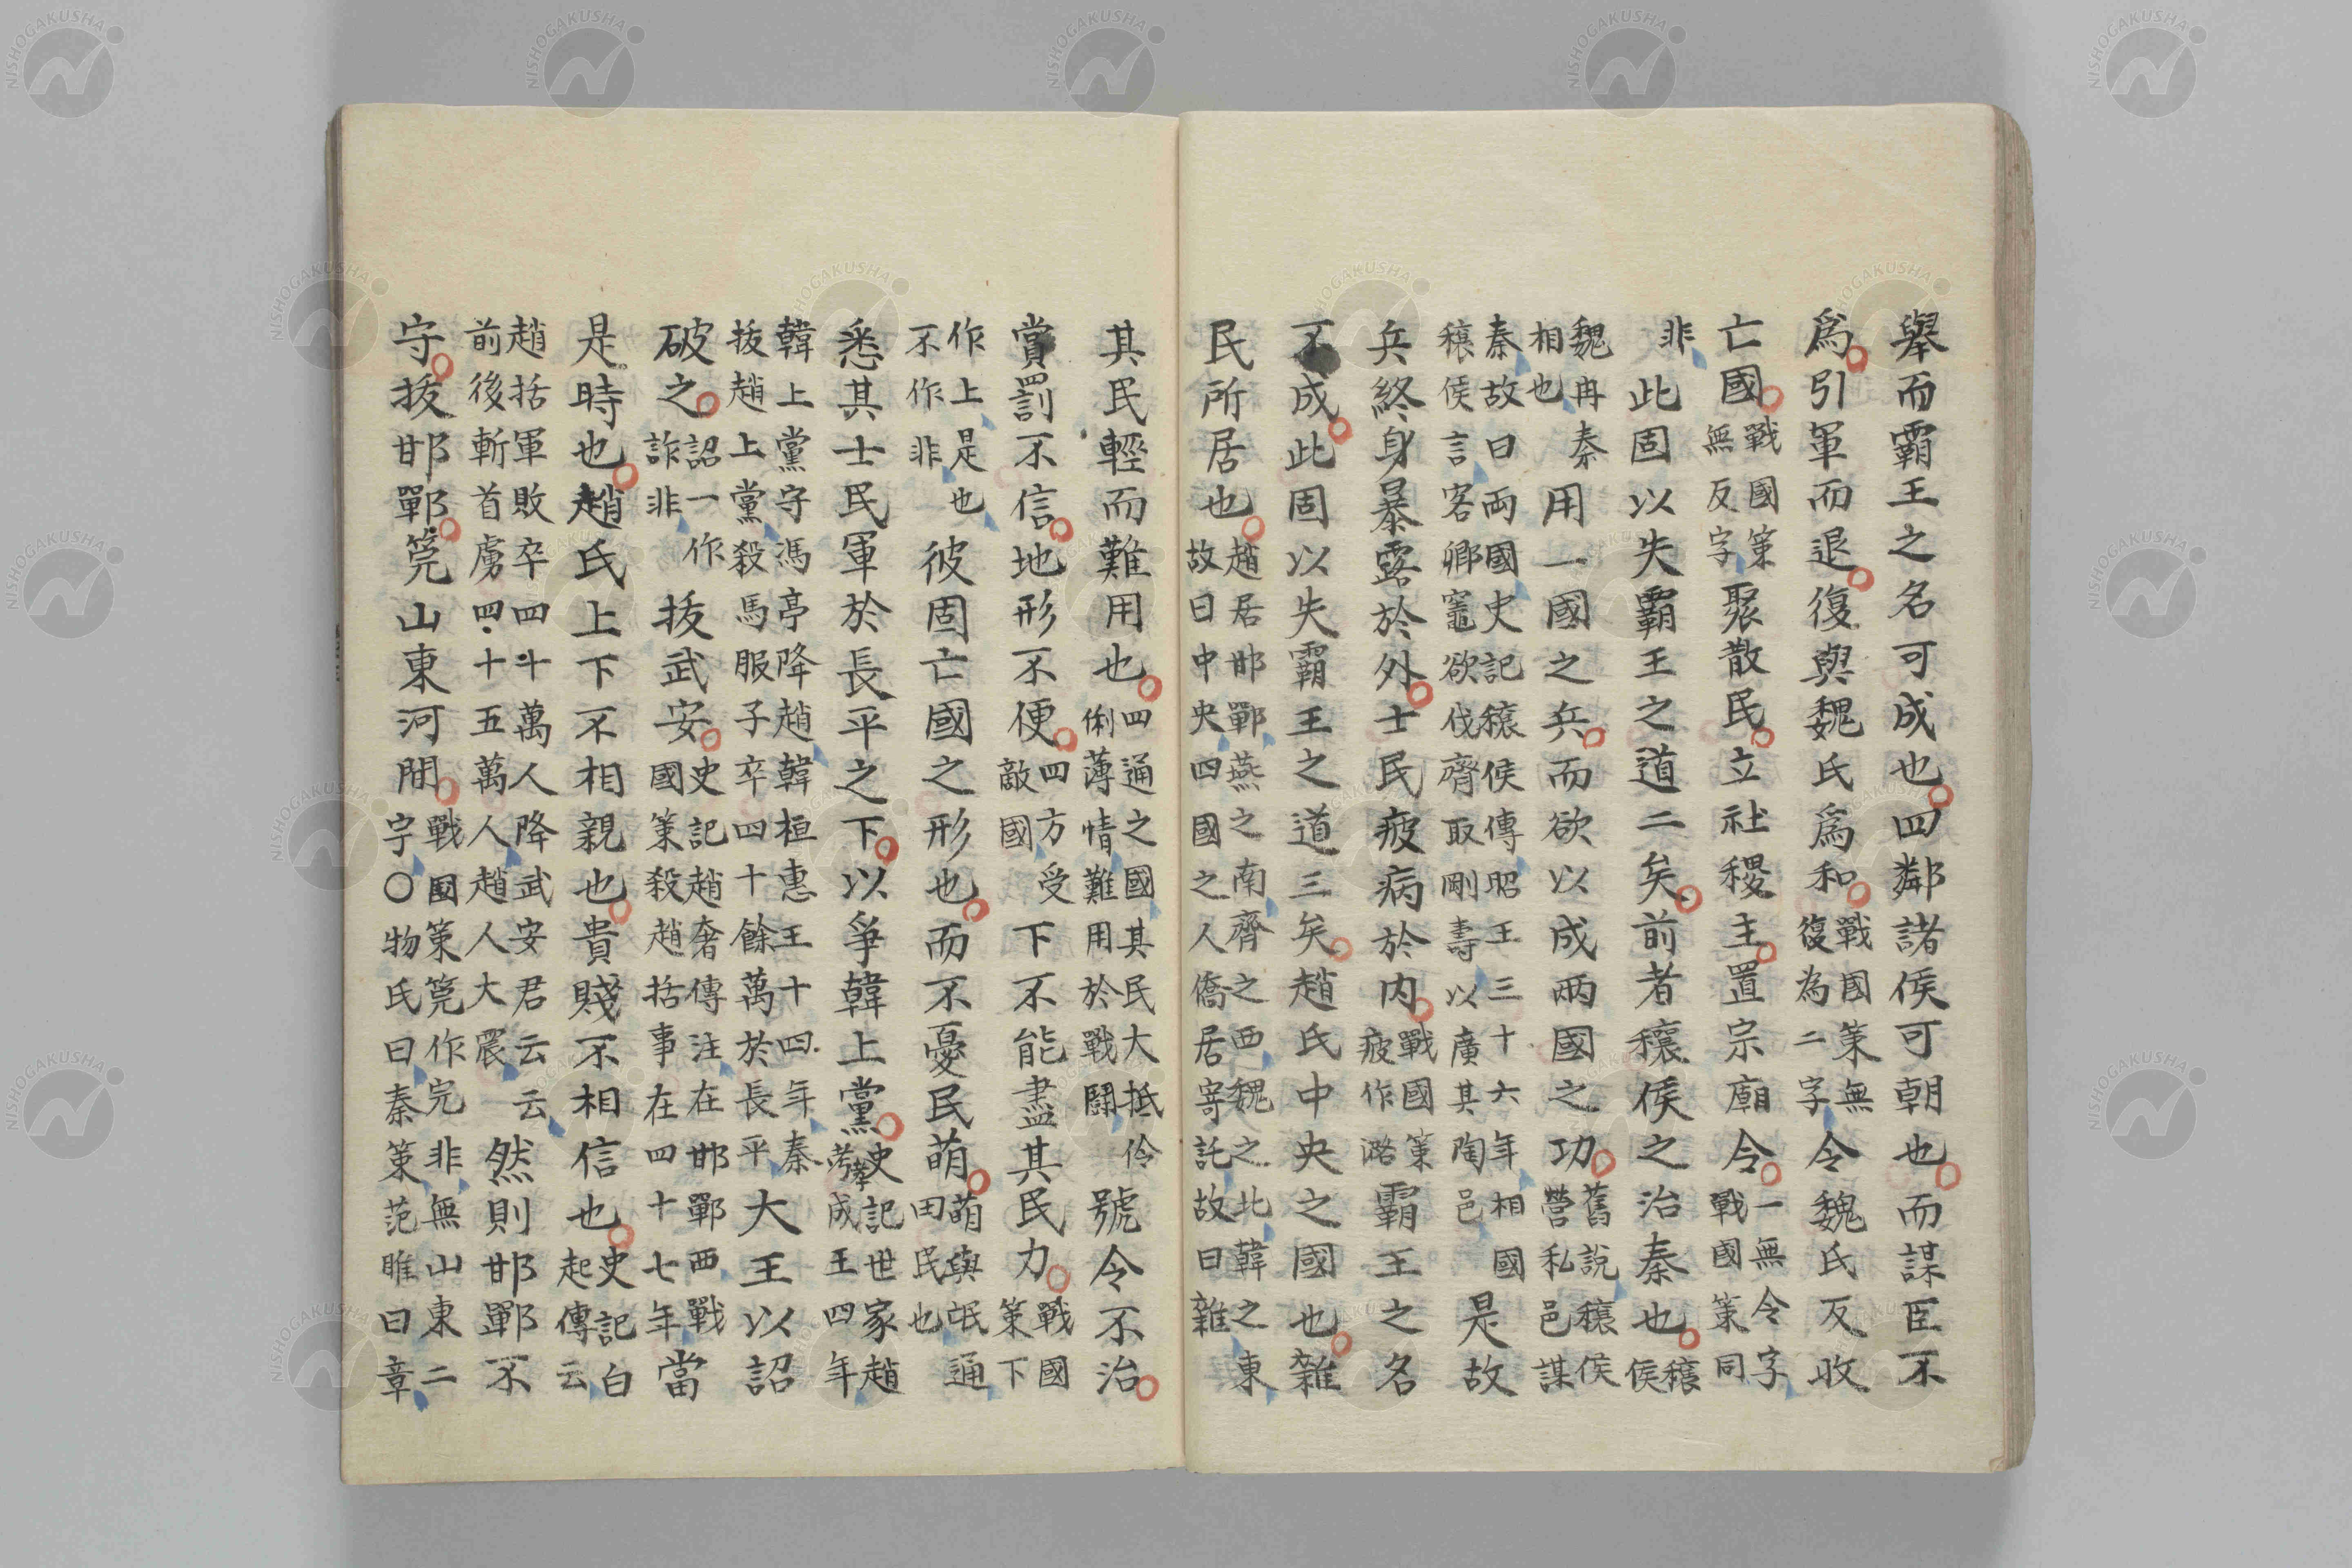 舉而霸王之名可成也四鄰諸侯可朝也而謀臣不
爲引軍而退復與魏氏爲和戰國策無復為二字令魏氏反收
亡國戰國策無反字聚散民立社稷主置宗廟令一無令字戰國策同
非此固以失霸王之道二矣前者穰侯之治秦也穰侯
魏冉秦相也用一國之兵而欲以成兩國之功舊說穰侯營私邑謀
秦故曰兩國史記穰侯傳昭王三十六年相國穰侯言客卿竈欲伐齊取剛壽以廣其陶邑是故
兵終身暴露於外士民疲病於内戰國策疲作潞霸王之名
不成此固以失霸王之道三矣趙氏中央之國也雜
民所居也趙居邯鄲燕之南齊之西魏之北韓之東故曰中央四國之人僑居寄託故曰雜
其民輕而難用也四通之國其民大抵伶俐薄情難用於戰鬪號令不治
賞罰不信地形不便四方受敵國下不能盡其民力戰國策下
作上是也不作非彼固亡國之形也而不憂民萌萌與氓通田民也
悉其士民軍於長平之下以爭韓上黨史記世家趙孝成王四年
韓上黨守馮亭降趙韓桓惠王十四年秦拔趙上黨殺馬服子卒四十餘萬於長平大王以詔
破之詔一作詐非拔武安史記趙奢傳注在邯鄲西戰國策殺趙括事在四十七年當
是時也趙氏上下不相親也貴賤不相信也史記白起傳云
趙括軍敗卒四十萬人降武安君云云前後斬首虜四十五萬人趙人大震然則邯鄲不
守拔邯鄲筦山東河間戰國策筦作完非無山東二字〇物氏曰秦策范睢曰章